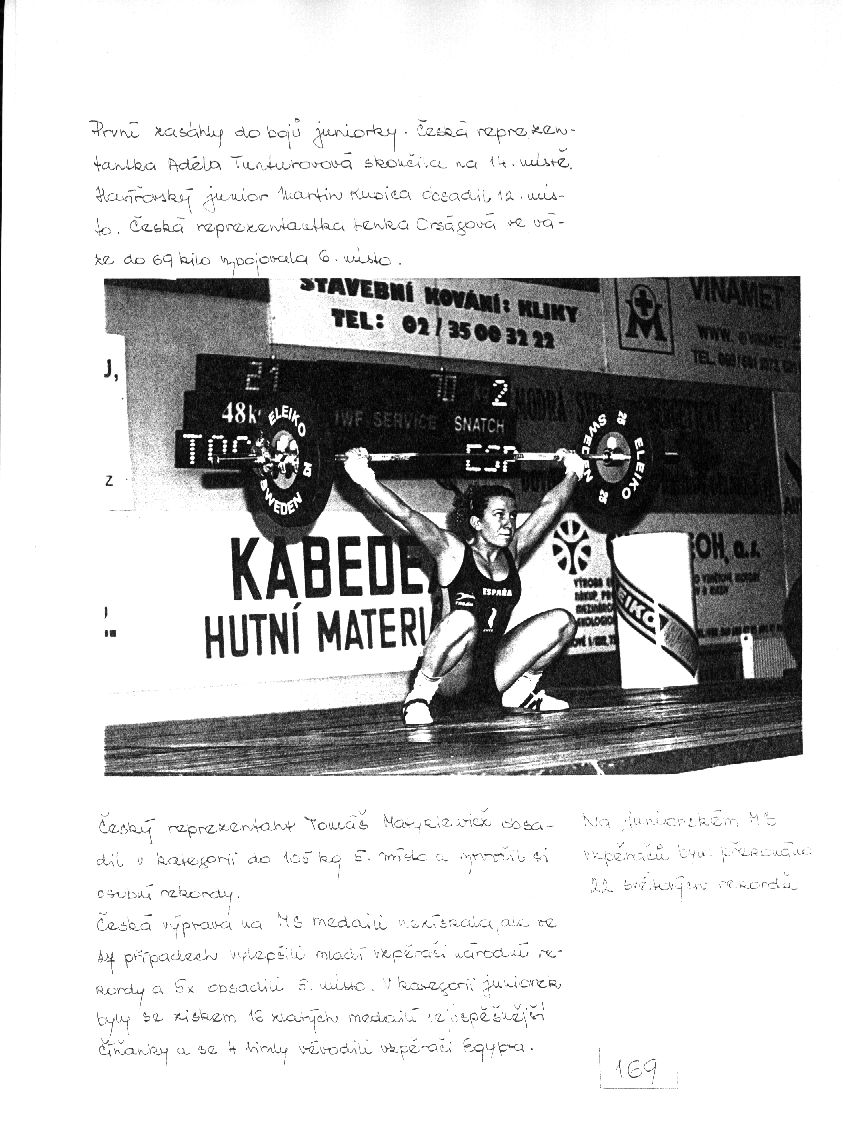 První zasáhly do bojů juniorky. Česká reprezen-
tantka Adéla Tunturovová skončila na 14. místě.
Havířovský junior Martin Kubica obsadil 12. mís-
to. Česká reprezentantka Lenka Orságová ve vá-
ze do 69 kilo vybojovala 6. místo.
STAVEBNÍ KOVÁNÍ: KLIKY
TEL: 02/35 00 32 22
VINAMET
M
TEL.
J,
21
70
2
48k
IWF SERVICE
SNATCH
ESP
Z
ELEIKO
SWEDEN
25
ELEIKO
25
KABEDE
HUTNÍ MATERI
ESPAÑA
VÝROBA
ELEIKO
OH, a.s.
Český reprezentant Tomáš Matykiewicz obsa-
dil v kategorii do 105 kg 5. místo a vytvořil si
osobní rekordy.
Česká výprava na MS medaili nezískala, ale ve
14 případech vylepšili mladí vzpěrači národní re-
kordy a 5x obsadili 5. místo. V kategorii juniorek
byly se ziskem 16 zlatých medailí nejúspěšnější
Číňanky a se 4 tituly vévodili vzpěrači Egypta.
Na juniorském MS
vzpěračů bylo překonáno
22 světových rekordů
169